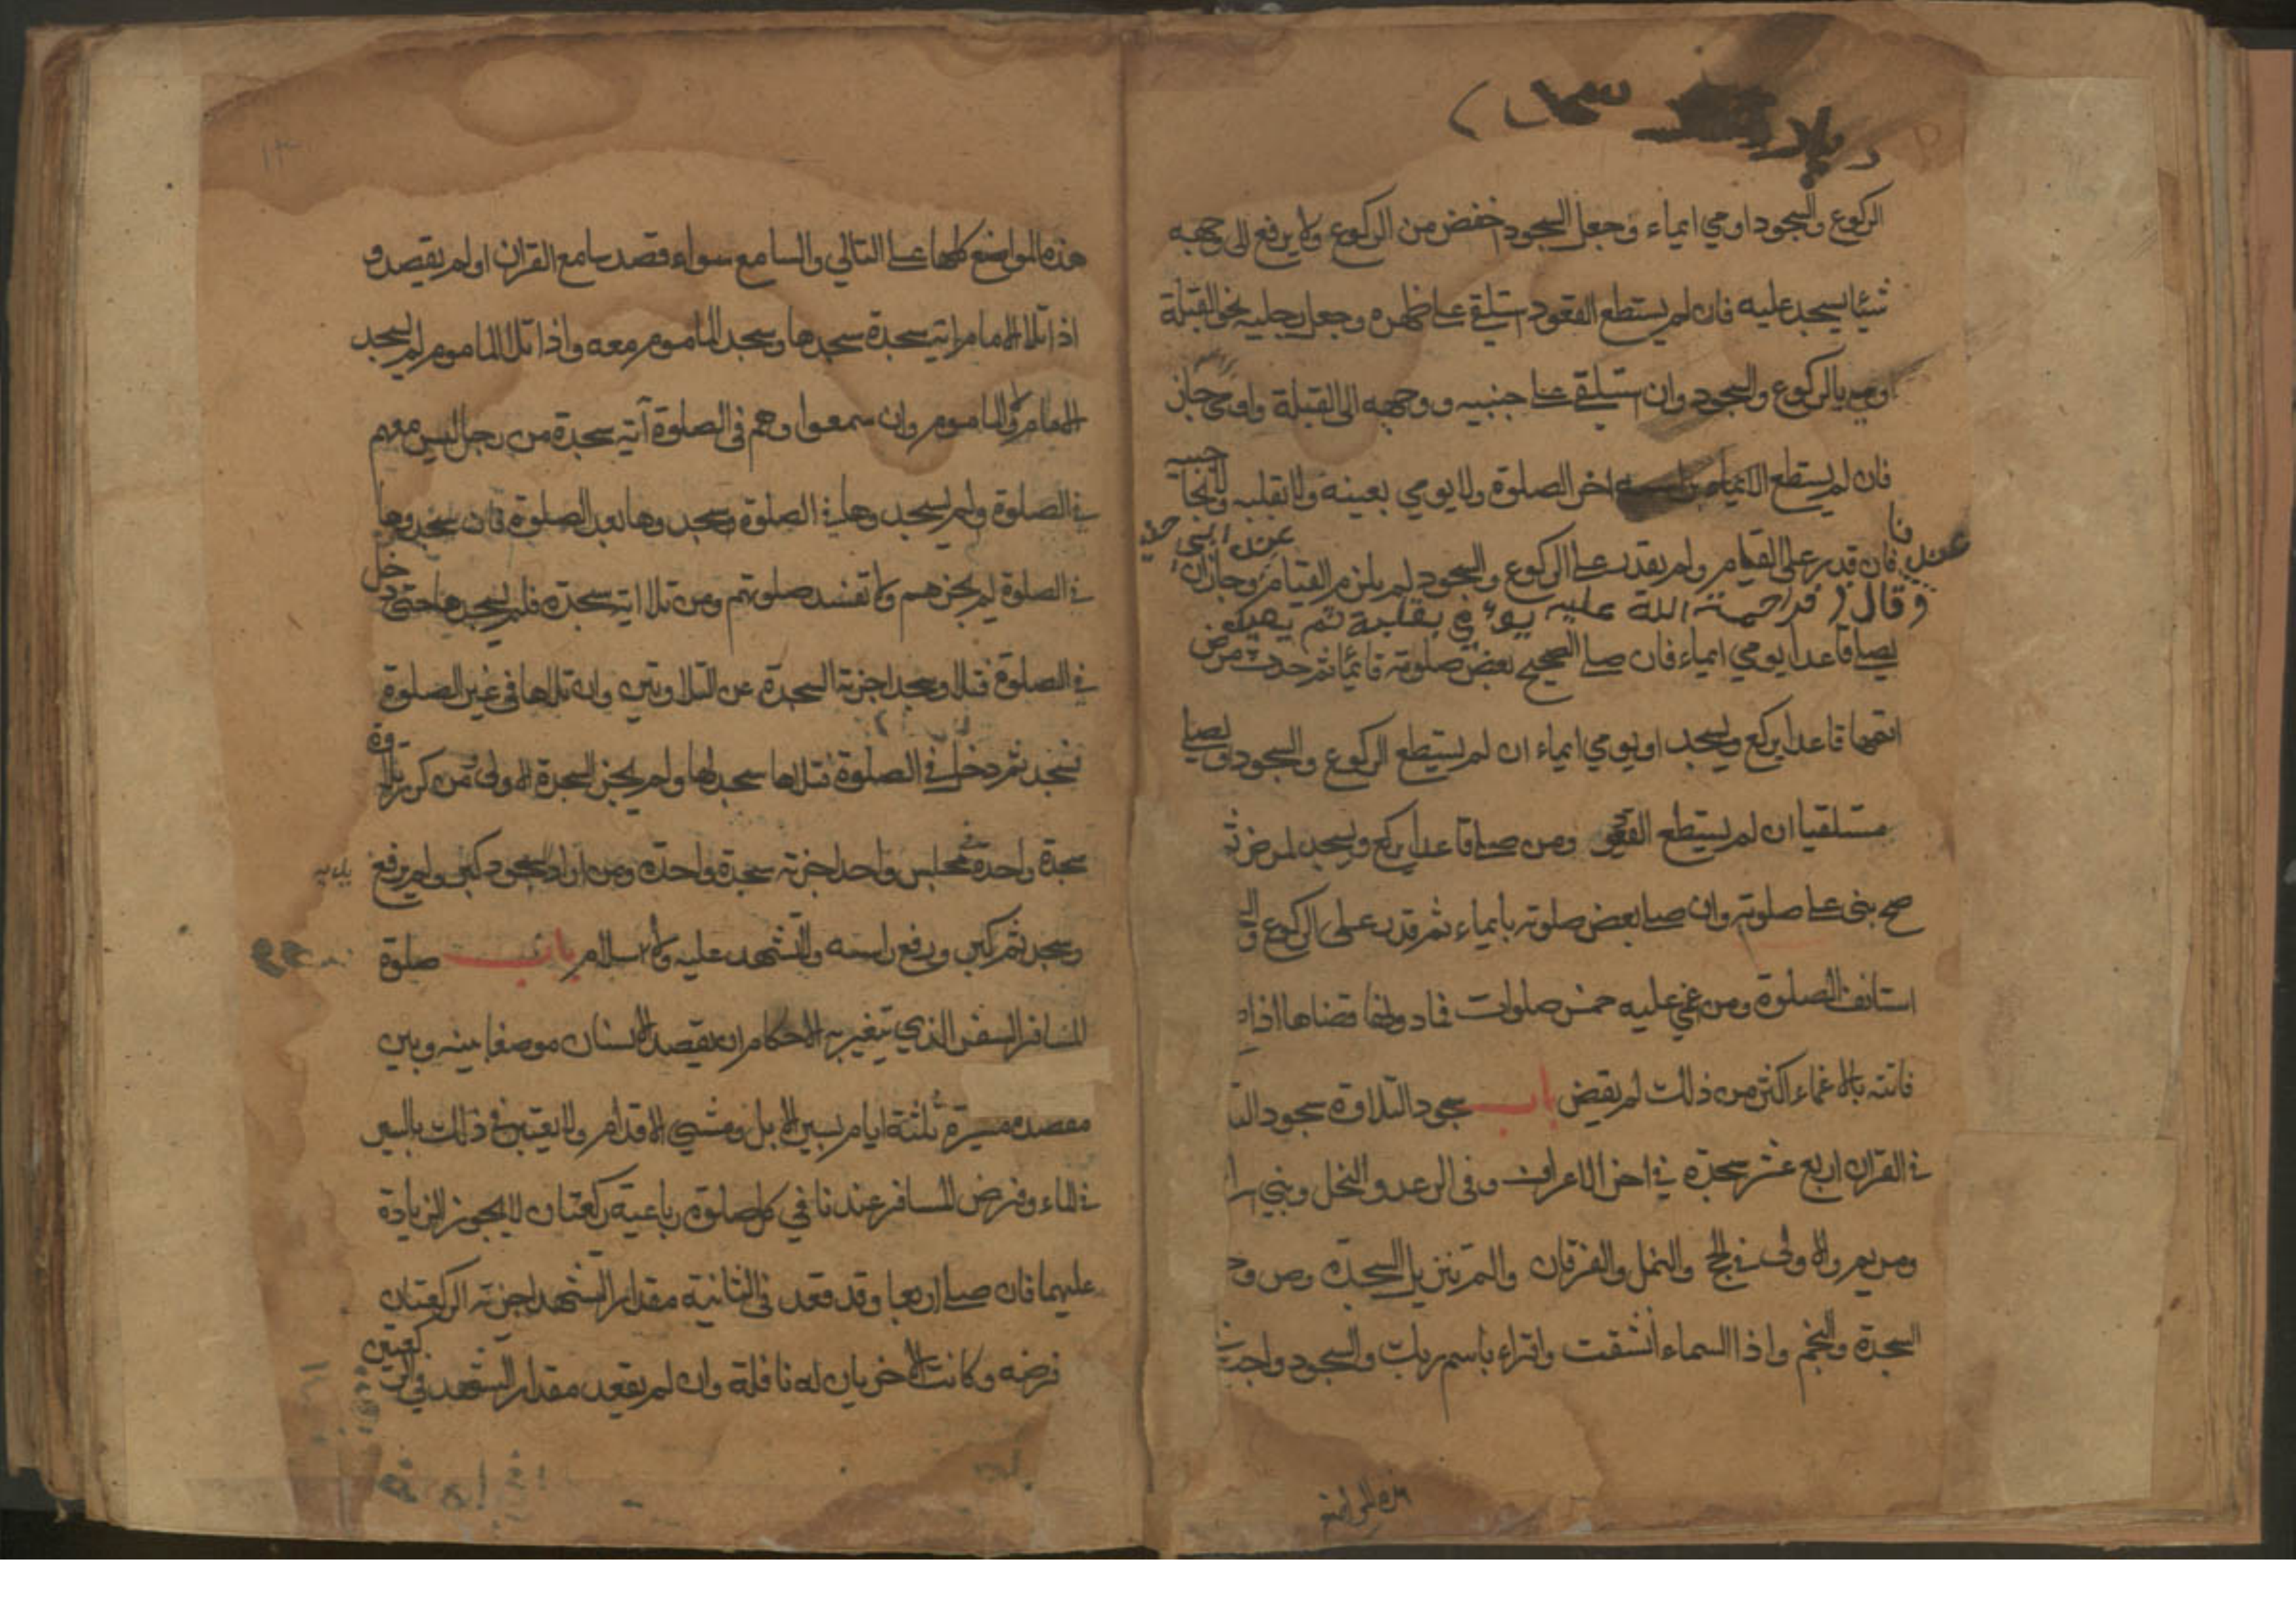 الركوع والسجود اومي ايماء وجعل السجود اخفض من الركوع ولا يرفع الى وجهه
شيئا يسجد عليه فان لم يستطع القعود استلقي علي ظهره وجعل رجليه نحو القبلة
اومي بالركوع والسجود وان ستلقي علي جنبيه ووجهه الى القبلة واومي جاز
فان لم يستطع الايماء اخر الصلوة ولا يومي بعينه ولا بقلبه ولا بحاجبيه
عند ابي
فان قدر علي القيام ولم يقدر علي الركوع والسجود لم يلزم القيام وجاز ان
وقال زفر رحمة الله عليه يومي بقلبه ثم يعيد
يصلي قاعدا يومي ايماء فان صلي الصحيح بعض صلوته قائما ثم حدث مرض
اتمها قاعدا يركع ويسجد او يومي ايماء ان لم يستطع الركوع والسجود او يصلي
مستلقيا ان لم يستطع القعود ومن صلي قاعدا يركع ويسجد لمرض ثم
صح بني علي صلوته وان صلي بعض صلوته بايماء ثم قدر علي الركوع
استانف الصلوة ومن غمي عليه خمس صلوات فما دونها قضاها اذا
فاتته بالاغماء اكثر من ذلك لم يقض باب سجود التلاوة سجود
في القران اربع عشر سجدة في اخر الاعراف وفي الرعد والنحل وبني اسرا
ومريم والاولى في الحج والنمل والفرقان والم تنزيل السجدة وص وحم
السجدة والنجم واذا السماء انشقت واقراء باسم ربك والسجود واجب في
هذه المواضع
هذه المواضع كلها علي التالي والسامع سواء قصد سامع القران او لم يقصد و
اذا تلا الامام اية سجدة سجدها وسجد الماموم معه واذا تلا الماموم لم يسجد
الامام ولا الماموم وان سمعوا وهم في الصلوة آية سجدة من رجل ليس معهم
في الصلوة ولم يسجدوها في الصلوة وسجدوها بعد الصلوة فان سجدوها
في الصلوة لم يجزهم ولا تفسد صلوتهم ومن تلا اية سجدة فلم يسجدها حتى دخل
في الصلوة فتلا وسجد اجزته السجدة عن التلاوتين وان تلاها في غير الصلوة
فسجد ثم دخل في الصلوة فتلاها سجد لها ولم يجز السجدة الاولى ومن كرر تلاوة
سجدة واحدة في مجلس واحد اجزته سجدة واحدة ومن اراد السجود كبر ولم يرفع يديه
وسجد ثم كبر ورفع راسه ولا تشهد عليه ولا سلام باب صلوة
المسافر السفر الذي تتغير به الاحكام ان يقصد الانسان موضعا بينه وبين
مقصده مسيرة ثلثة ايام بسير الابل ومشي الاقدام ولا يعتبر في ذلك بالسير
في الماء وفرض المسافر عندنا في كل صلوة رباعية ركعتان لا يجوز الزيادة
عليهما فان صلي اربعا وقد قعد في الثانية مقدار التشهد اجزته الركعتان
فرضه وكانت الاخريان له نافلة وان لم يقعد مقدار التشهد في الركعتين